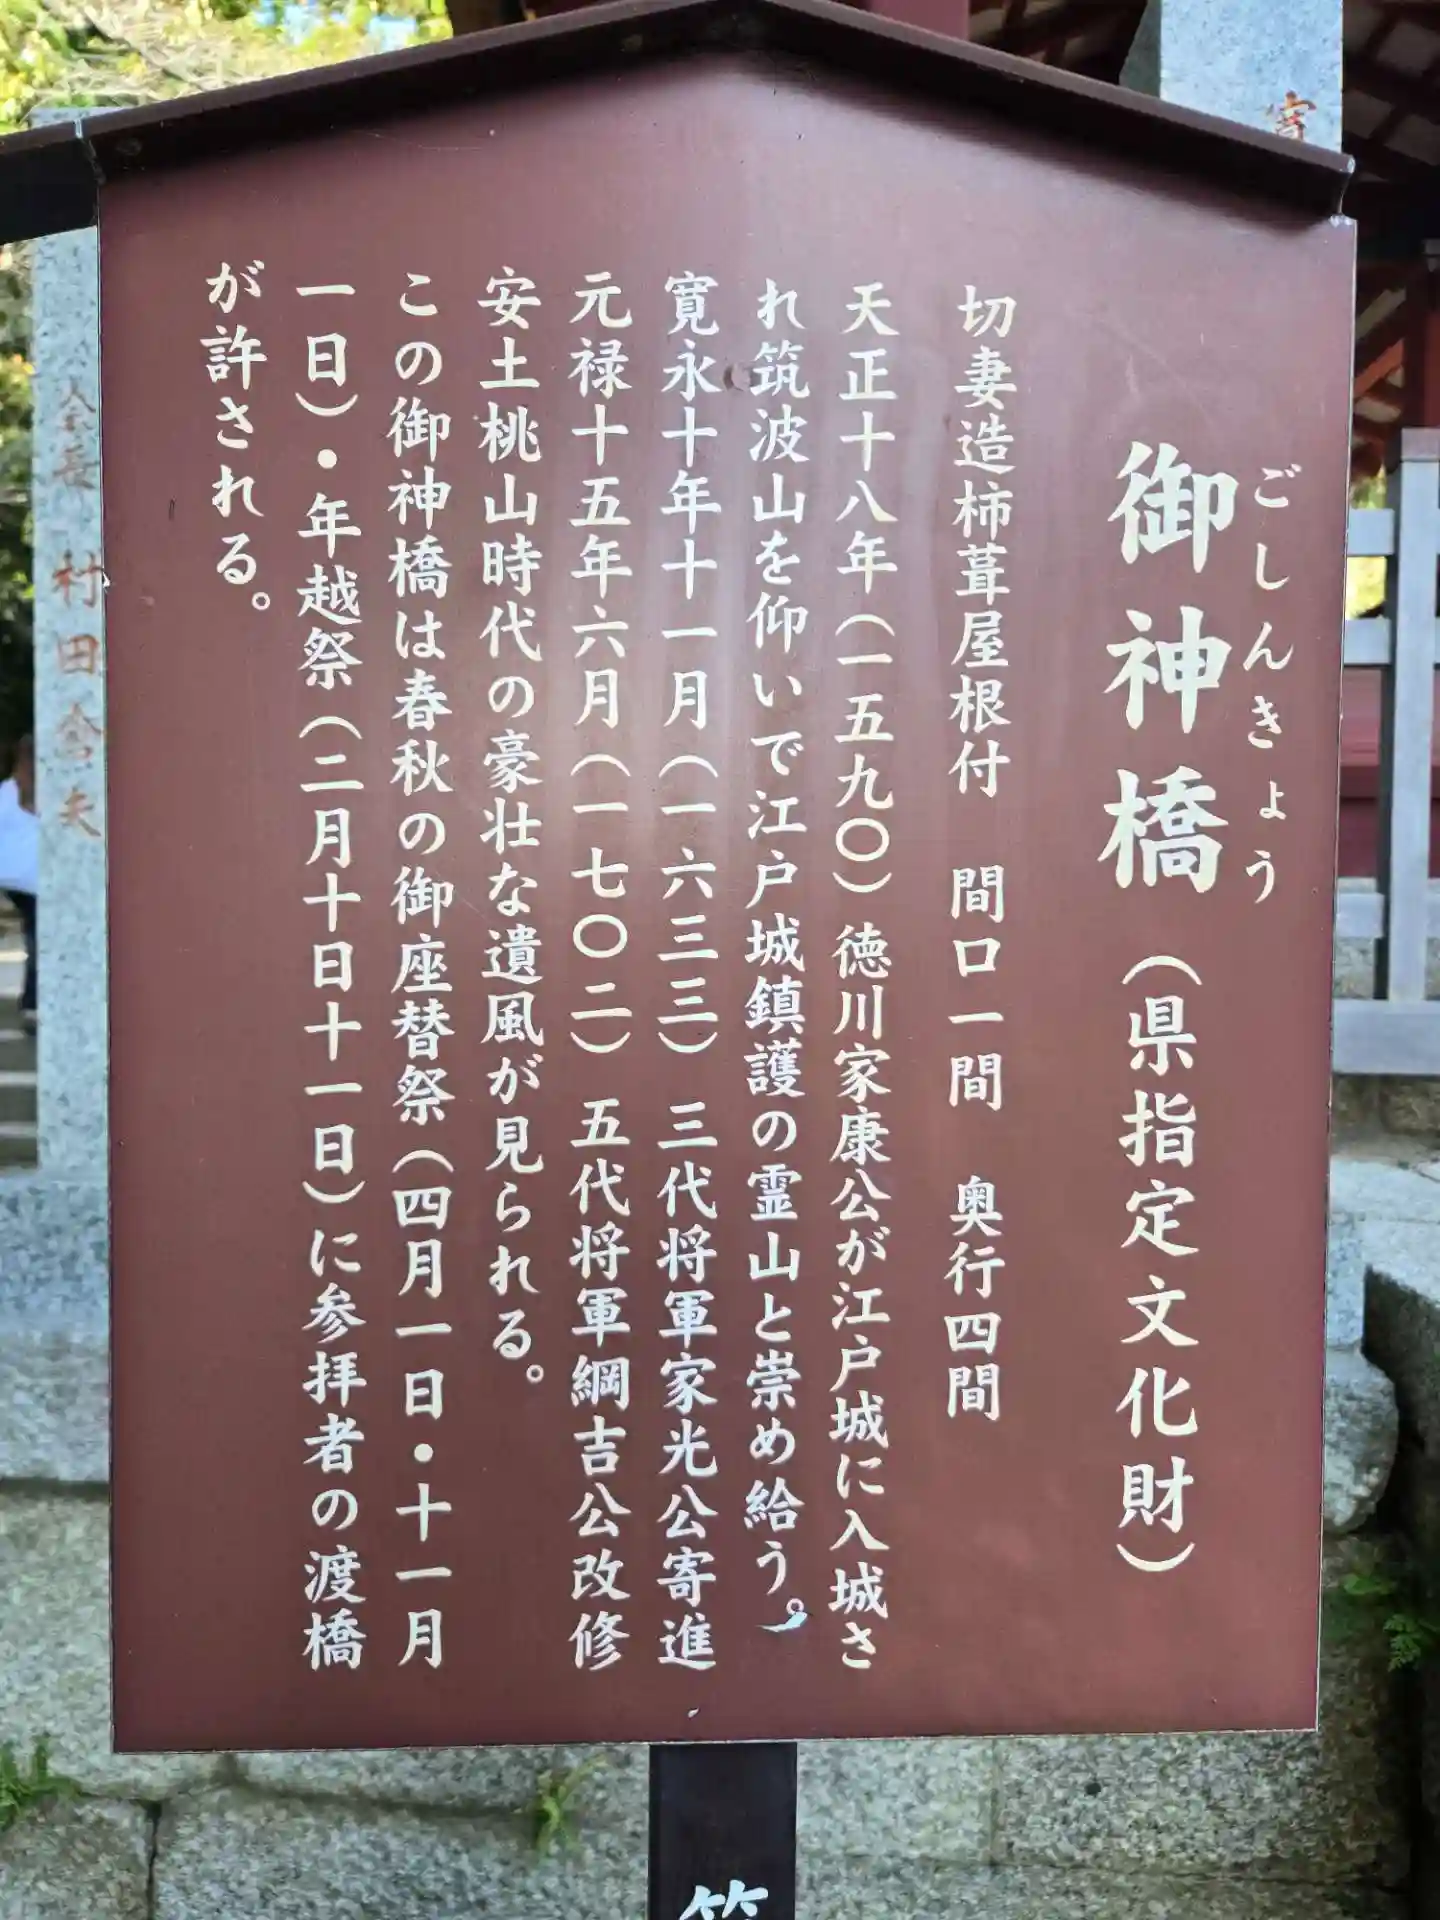 ごしんきょう
御神橋（県指定文化財）
切妻造柿葺屋根付　間口一間　奥行四間
天正十八年（一五九〇）徳川家康公が江戸城に入城さ
れ筑波山を仰いで江戸城鎮護の霊山と崇め給う。
寛永十年十一月（一六三三）三代将軍家光公寄進
元禄十五年六月（一七〇二）五代将軍綱吉公改修
安土桃山時代の豪壮な遺風が見られる。
この御神橋は春秋の御座替祭（四月一日・十一月
一日）・年越祭（二月十日十一日）に参拝者の渡橋
が許される。
村田
筑